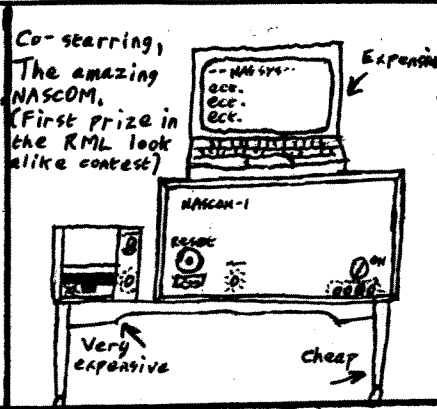 Co-starring,
The amazing
NASCOM.
(First prize in
the RML look
alike contest)
Expensive
-- NASSYS --
ect.
ect.
ect.
NASCOM-1
RESET
ON
Very
expensive
Cheap